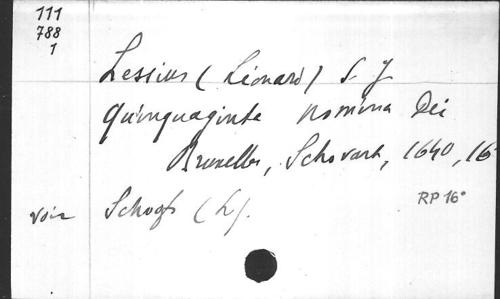 111
788
1
Lessius (Léonard) S. J
Quinquaginta nomina Dei
Bruxelles, Schovart, 1640, 16°
voir Schoofs (L).
RP 16°